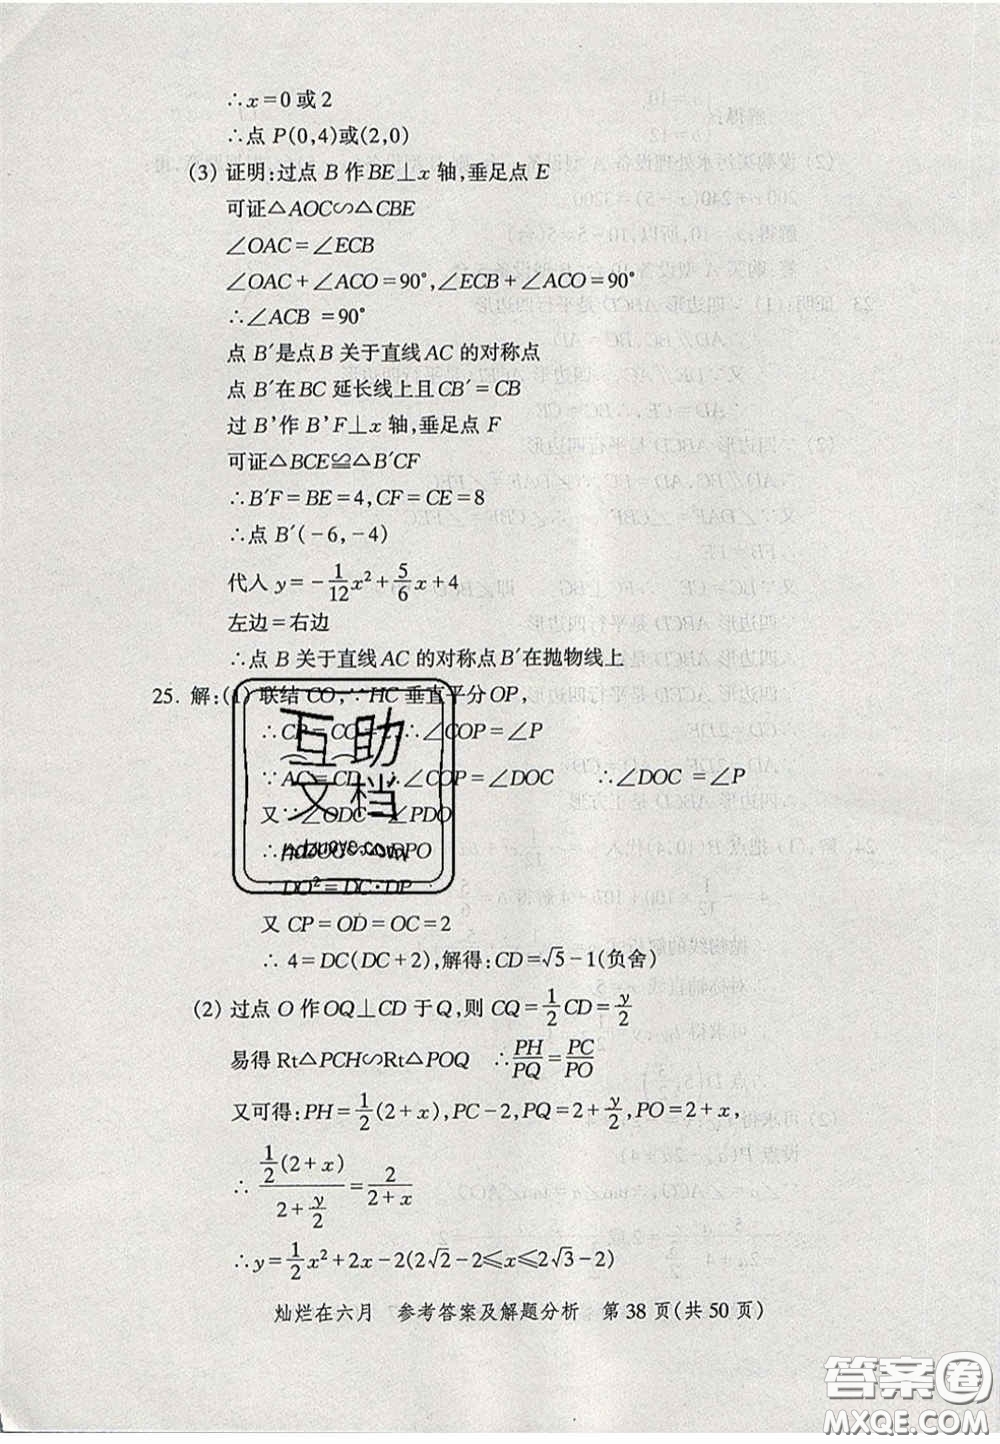 ∴x=0或2
∴点 P(0,4)或(2,0)
(3) 证明:过点 B 作 BE⊥x 轴,垂足点 E
可证△AOC∽△CBE
∠OAC=∠ECB
∠OAC+∠ACO=90°,∠ECB+∠ACO=90°
∴∠ACB=90°
点 B′是点B 关于直线 AC 的对称点
点 B′在 BC 延长线上且 CB′=CB
过 B'作 B'F⊥x 轴,垂足点 F
可证△BCE≌△B′CF
∴B′F=BE=4,CF=CE=8
∴点 B′(-6,-4)
代入 y=-1/12x²+5/6x+4
左边=右边
∴点 B 关于直线 AC 的对称点 B′在抛物线上
25. 解:(1) 联结 CO,∵HC 垂直平分 OP,
∴CP=CO=2,∴∠COP=∠P
∵AC=CD ∴∠COP=∠DOC ∴∠DOC=∠P
又∵∠ODC=∠PDO
∴△DOC∽△DPO
∴DO²=DC·DP
又 CP=OD=OC=2
∴ 4=DC(DC+2),解得:CD=√5-1(负舍)
(2) 过点 O 作 OQ⊥CD 于 Q,则 CQ=1/2CD=y/2
易得 Rt△PCH∽Rt△POQ ∴PH/PQ=PC/PO
又可得:PH=1/2(2+x),PC-2,PQ=2+y/2,PO=2+x,
∴ (1/2(2+x))/(2+y/2)=2/(2+x)
∴y=1/2x²+2x-2(2√2-2≤x≤2√3-2)
灿烂在六月 参考答案及解题分析 第 38 页(共 50 页)
互助
文档
hdzuoye.com
答案圈
MXQE.COM